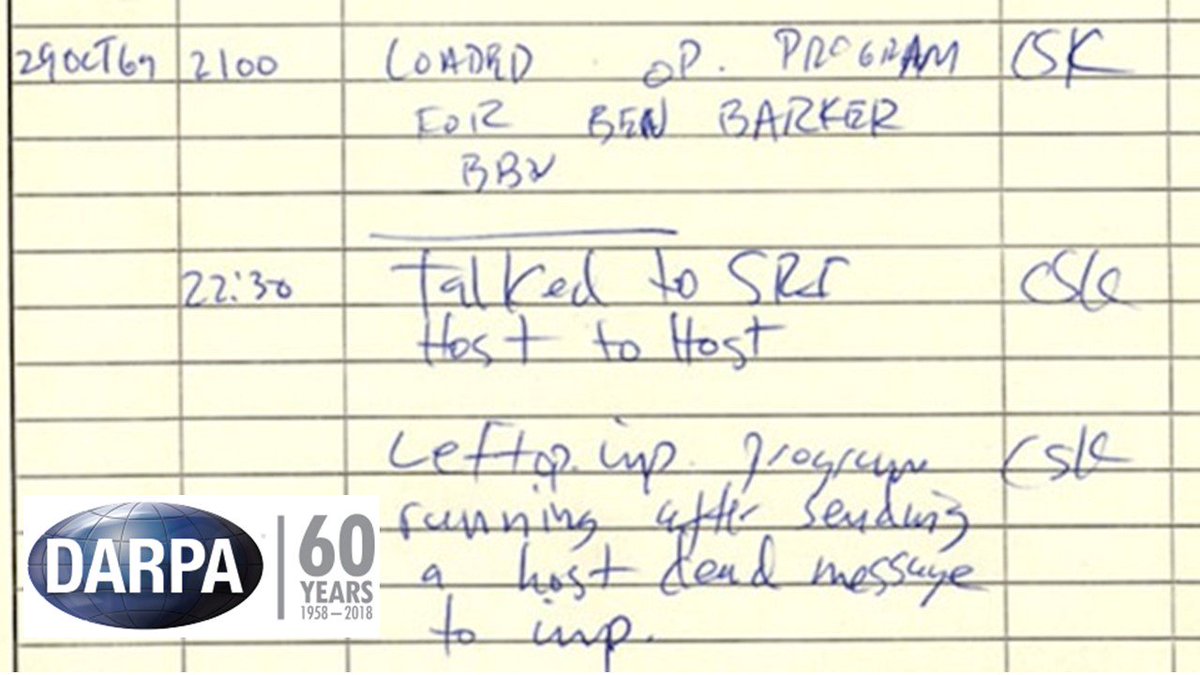 29 OCT 69 2100 LOADED OP. PROGRAM CSK
FOR BEN BARKER
BBN
22:30 Talked to SRI CSK
Host to Host
Left op. imp. program CSK
running after sending
a host dead message
to imp.
DARPA
60
YEARS
1958 – 2018